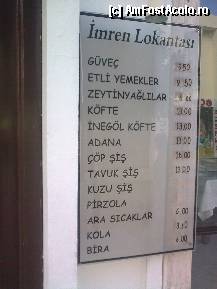 (c) AmFostAcolo.ro
İmren Lokantası
GÜVEÇ 9.50
ETLİ YEMEKLER 9.50
ZEYTİNYAĞLILAR
KÖFTE 13.00
İNEGÖL KÖFTE 13.00
ADANA 13.00
ÇÖP ŞİŞ 16.00
TAVUK ŞİŞ 13.00
KUZU ŞİŞ
PİRZOLA
ARA SICAKLAR 6.00
KOLA
BİRA 6.00